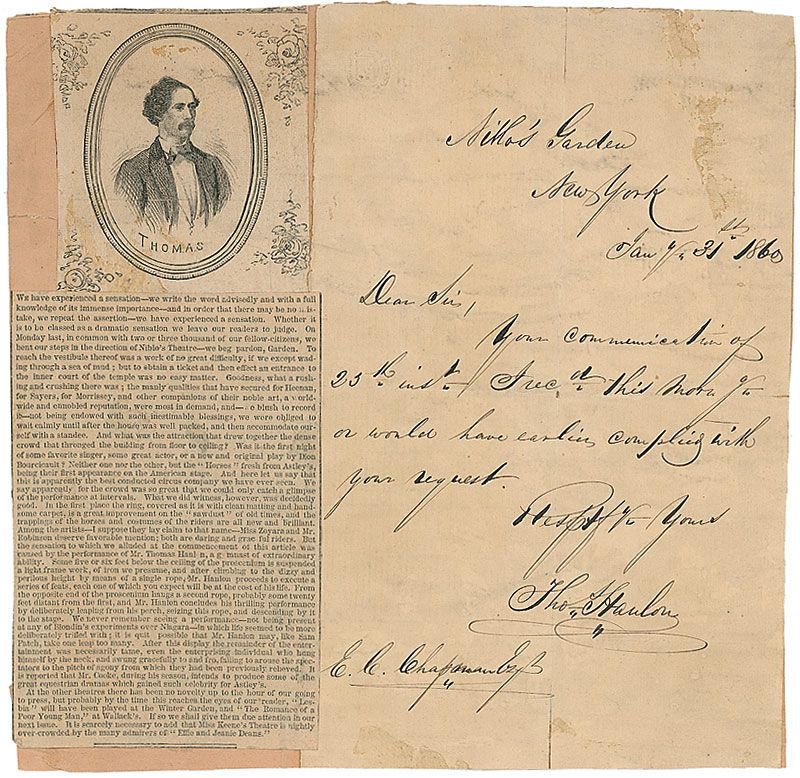 THOMAS
WE have experienced a sensation—we write the word advisedly and with a full
knowledge of its immense importance—and in order that there may be no mis-
take, we repeat the assertion—we have experienced a sensation. Whether it
is to be classed as a dramatic sensation we leave our readers to judge. On
Monday last, in common with two or three thousand of our fellow-citizens, we
bent our steps in the direction of Niblo's Theatre—we beg pardon, Garden. To
reach the vestibule thereof was a work of no great difficulty, if we except wad-
ing through a sea of mud; but to obtain a ticket and then effect an entrance to
the inner court of the temple was no easy matter. Goodness, what a rush-
ing and crushing there was; the manly qualities that have secured for Heenan,
for Sayers, for Morrissey, and other companions of their noble art, a world-
wide and ennobled reputation, were most in demand, and—we blush to record
it—not being endowed with such inestimable blessings, we were obliged to
wait calmly until after the house was well packed, and then accommodate our-
self with a standee. And what was the attraction that drew together the dense
crowd that thronged the building from floor to ceiling? Was it the first night
of some favorite singer, some great actor, or a new and original play by Dion
Bourcicault? Neither one nor the other, but the "Horses" fresh from Astley's,
being their first appearance on the American stage. And here let us say that
this is apparently the best conducted circus company we have ever seen. We
say apparently for the crowd was so great that we could only catch a glimpse
of the performance at intervals. What we did witness, however, was decidedly
good. In the first place the ring, covered as it is with clean matting and hand-
some carpet, is a great improvement on the "sawdust" of old times, and the
trappings of the horses and costumes of the riders are all new and brilliant.
Among the artists—I suppose they claim to that name—Miss Zoyara and Mr.
Robinson deserve favorable mention; both are daring and graceful riders. But
the sensation to which we alluded at the commencement of this article was
caused by the performance of Mr. Thomas Hanlon, a gymnast of extraordinary
ability. Some five or six feet below the ceiling of the proscenium is suspended
a light frame work, of iron we presume, and after climbing to the dizzy and
perilous height by means of a single rope, Mr. Hanlon proceeds to execute a
series of feats, each one of which you expect will be at the cost of his life. From
the opposite end of the proscenium hangs a second rope, probably some twenty
feet distant from the first, and Mr. Hanlon concludes his thrilling performance
by deliberately leaping from his perch, seizing this rope, and descending by it
to the stage. We never remember seeing a performance—not being present
at any of Blondin's experiments over Niagara—in which life seemed to be more
deliberately trifled with; it is quite possible that Mr. Hanlon may, like Sam
Patch, take one leap too many. After this display the remainder of the enter-
tainment was necessarily tame, even the enterprising individual who hung
himself by the neck, and swung gracefully to and fro, failing to arouse the spec-
tators to the pitch of agony from which they had been previously relieved. It
is reported that Mr. Cooke, during his season, intends to produce some of the
great equestrian dramas which gained such celebrity for Astley's.
At the other theatres there has been no novelty up to the hour of our going
to press, but probably by the time this reaches the eyes of our reader, "Les-
bia" will have been played at the Winter Garden, and "The Romance of a
Poor Young Man," at Wallack's. If so we shall give them due attention in our
next issue. It is scarcely necessary to add that Miss Keene's Theatre is nightly
over-crowded by the many admirers of "Effie and Jeanie Deans."
Niblo's Garden
New York
Jany 31st 1860
Dear Sir,
Your communication of
25th inst I recd this morng
or would have earlier complied with
your request.
Respfty Yours
Thos Hanlon
E. C. Chapman Esq